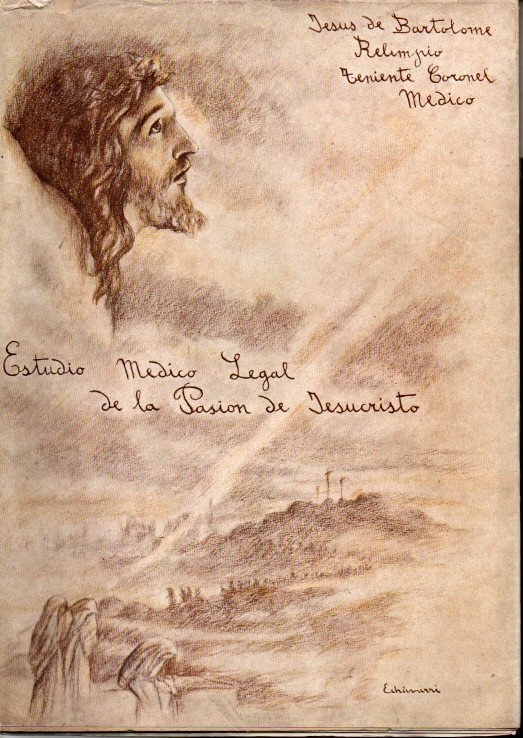 Jesus de Bartolome
Relimpio
Teniente Coronel
Medico
Estudio Medico Legal
de la Pasion de Jesucristo
Echivarri